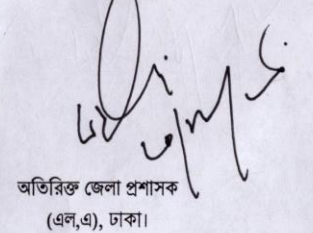 অতিরিক্ত জেলা প্রশাসক
(এল,এ), ঢাকা।